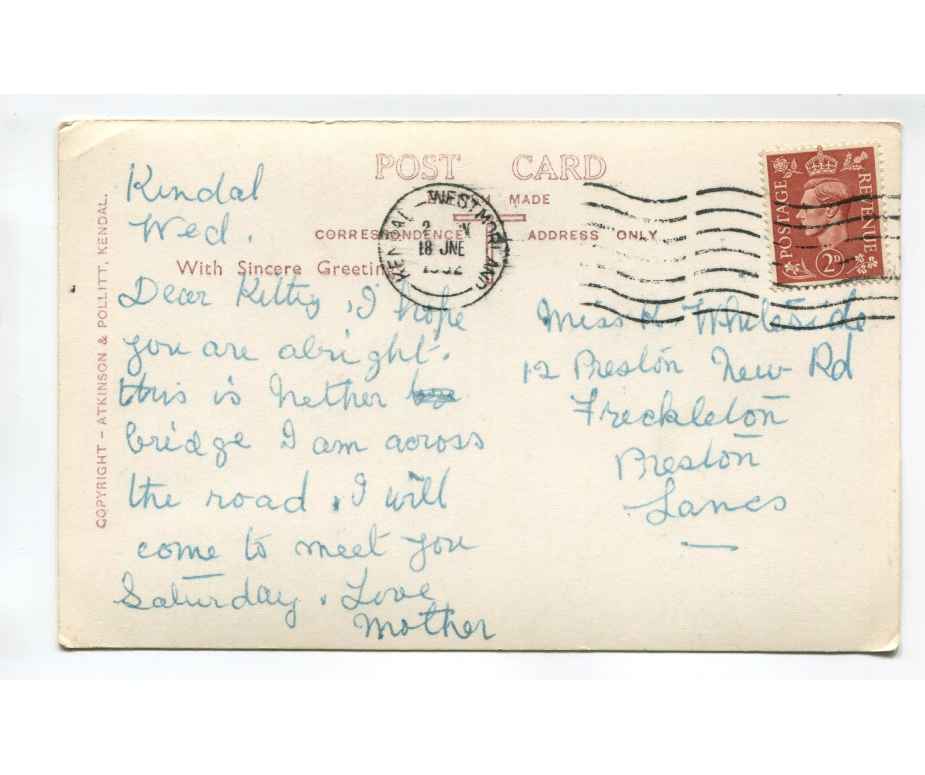 POST CARD
MADE
CORRESPONDENCE ADDRESS ONLY
With Sincere Greetin
COPYRIGHT – ATKINSON & POLLITT, KENDAL.
KENDAL WESTMORLAND
18 JNE
POSTAGE REVENUE
2D
Kendal
Wed.
Dear Kitty, I hope
you are alright.
this is Nether
bridge I am across
the road, I will
come to meet you
Saturday. Love
Mother
Miss K. Whiteside
12 Preston New Rd
Freckleton
Preston
Lancs